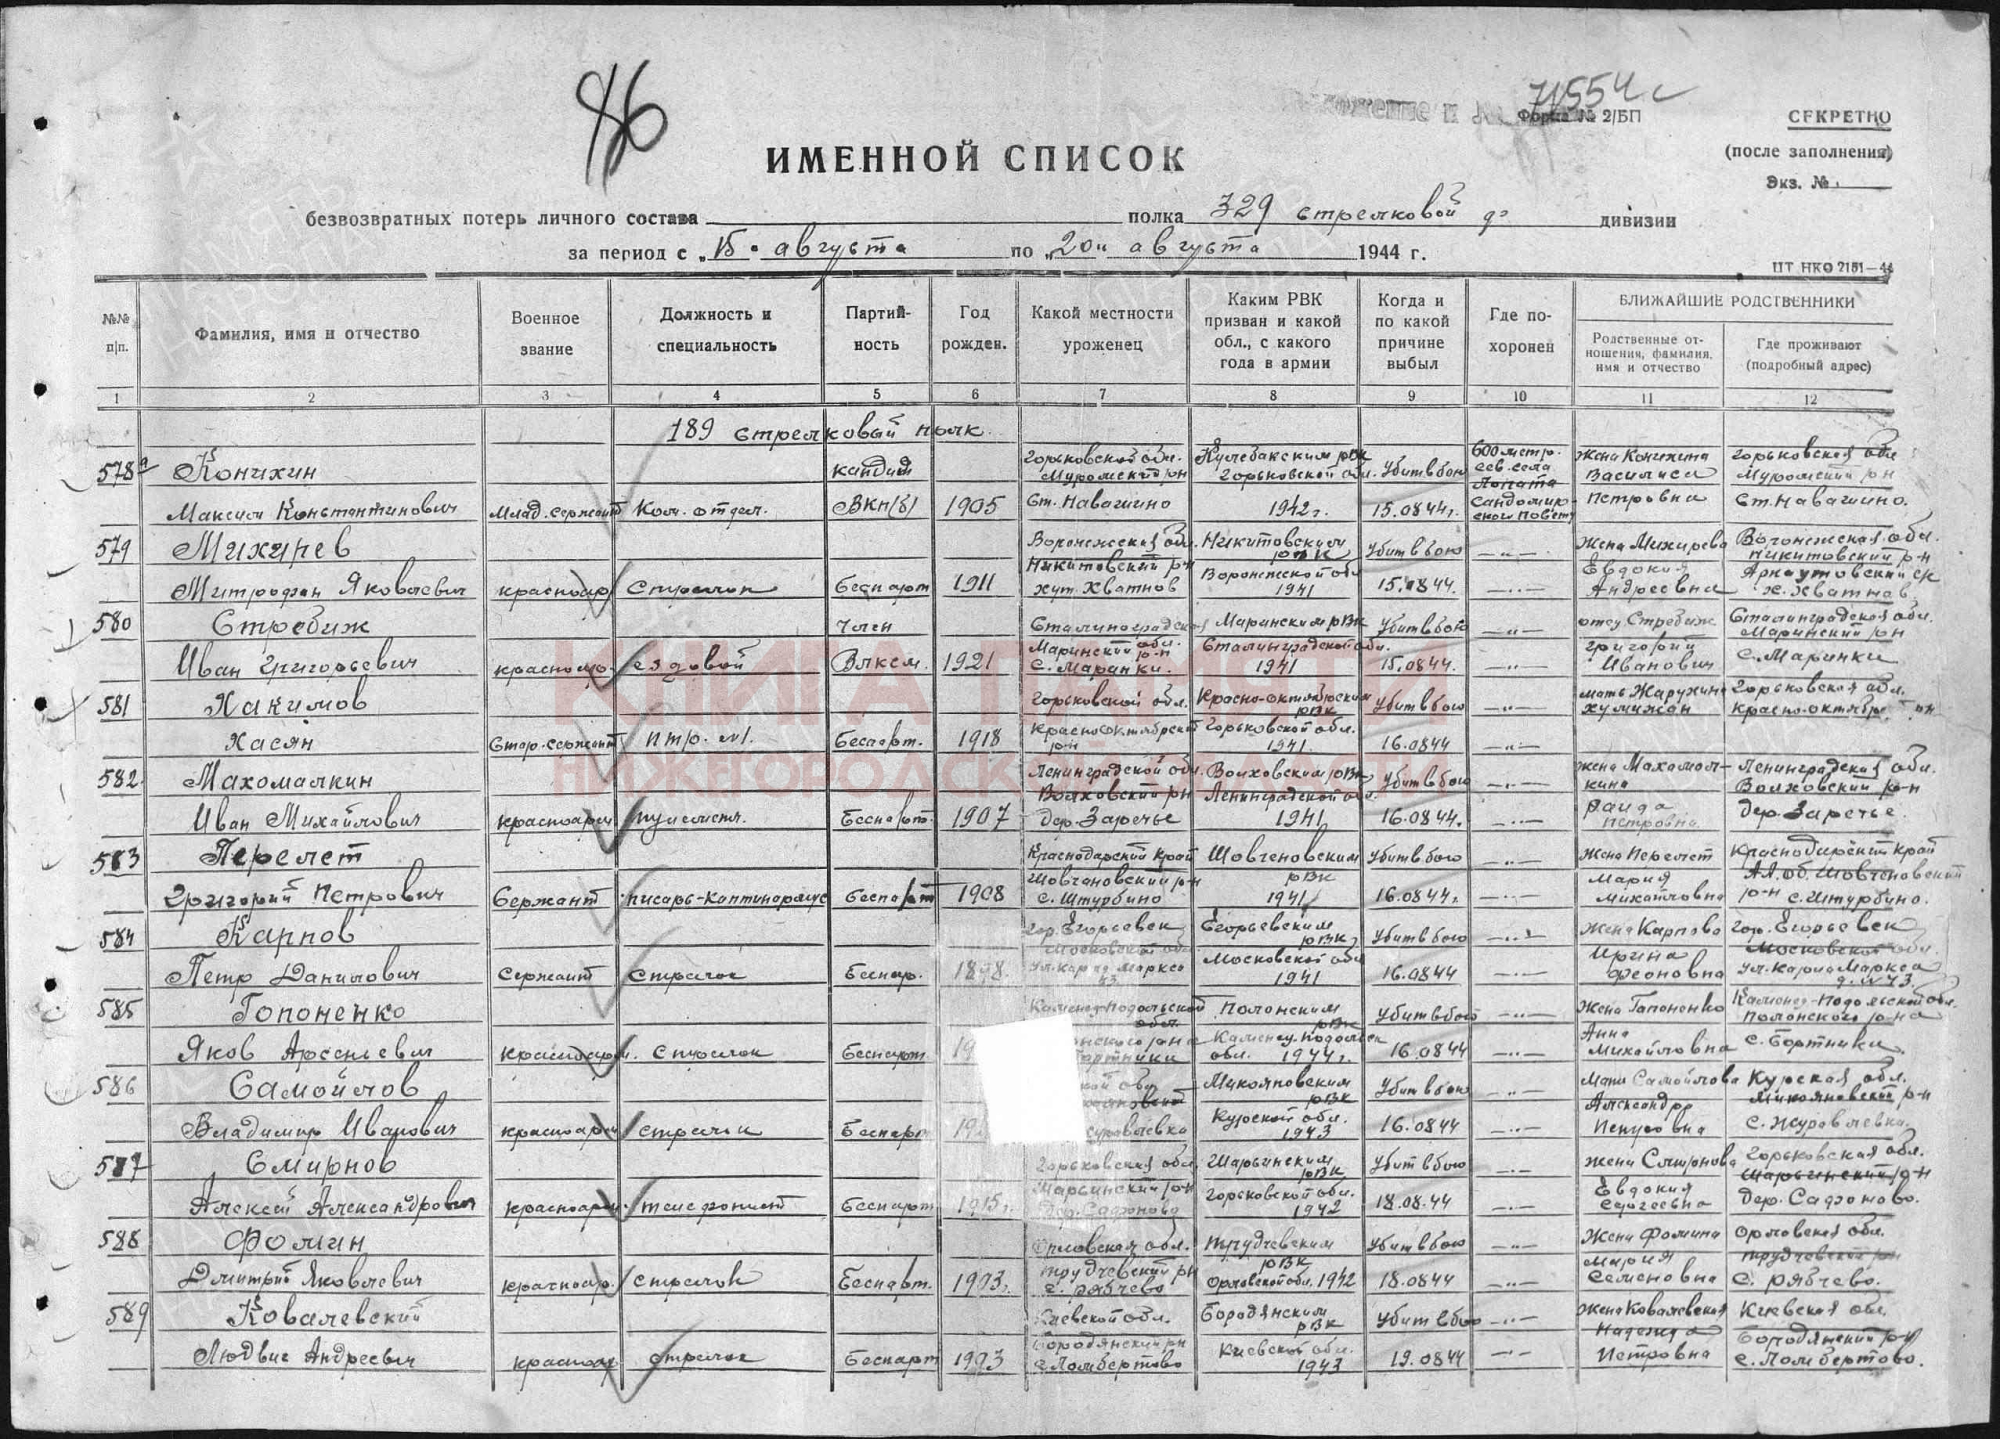 86
71554с
Форма № 2/БП
СЕКРЕТНО
(после заполнения)
Экз. №
ИМЕННОЙ СПИСОК
безвозвратных потерь личного состава полка 329 стрелковой дивизии
за период с „15" августа по „20" августа 1944 г.
ЦТ НКО 2151—44
№№ п/п. Фамилия, имя и отчество Военное звание Должность и специальность Партийность Год рожден. Какой местности уроженец Каким РВК призван и какой обл., с какого года в армии Когда и по какой причине выбыл Где похоронен БЛИЖАЙШИЕ РОДСТВЕННИКИ
Родственные отношения, фамилия, имя и отчество Где проживают (подробный адрес)
1 2 3 4 5 6 7 8 9 10 11 12
189 стрелковый полк
578а Конихин кандид Горьковской обл. Муромский р-н Кулебакским рвк Горьковской обл. Убит в бою 600 метр. сев. села Лопата Жена Конихина Василиса Горьковская обл. Муромский р-н
Максим Константинович Млад. сержант Ком. отдел. ВКП(б) 1905 ст. Навашино 1942 г. 15.08.44г. Сандомирского повету Петровна ст. Навашино.
579 Михирев Воронежская обл. Никитовский р-н Никитовским рвк Убит в бою —"— Жена Михирева Воронежская обл. Никитовский р-н
Митрофан Яковлевич красноар стрелок беспарт 1911 хут. Хватнов Воронежской обл 1941 15.08.44. —"— Евдокия Андреевна х. Хватнов
580 Стребиж член Сталинградская Маринским рвк Убит в бою —"— отец Стребиж Сталинградская обл. Маринский р-н
Иван Григорьевич красноар ездовой Влксм. 1921 Маринский р-н с. Маринки. Сталинградской обл. 1941 15.08.44. —"— Григорий Иванович с. Маринки
581 Хакимов Горьковской обл. Красно-октябрьским рвк Убит в бою —"— мать Жарухина Хумижан Горьковская обл. Красно-октябр. р-н
Хасян Стар. сержант беспарт. 1918 Краснооктябрьский р-н Горьковской обл. 1941. 16.08.44 —"—
582. Махомалкин Ленинградской обл. Волховский р-н Волховским рвк Ленинградской обл. Убит в бою Жена Махомалкина Ленинградская обл. Волховский р-н
Иван Михайлович красноарм пулеметч. беспарт 1907 дер. Заречье 1941 16.08.44. —"— Петровна дер. Заречье.
583 Перелет Краснодарский край Шовгеновским рвк Убит в бою —"— Жена Перелет Краснодарский край
Григорий Петрович Сержант писарь-каптинармус беспарт 1908 Шовгеновский р-н с. Штурбино 1941 16.08.44г. —"— Мария Михайловна АА. об. Шовгеновский р-н с. Штурбино.
584 Карпов гор. Егорьевск Московской обл. Егорьевским рвк Убит в бою —"— Жена Карпова гор. Егорьевск Московской обл.
Петр Данилович Сержант стрелок беспар. 1898. ул. Карла Маркса 43 Московской обл 1941 16.08.44 —"— Ирина Феоновна ул. Карла Маркса д. № 43.
585 Гопоненко Каменец-Подольской обл. Полонским рвк Убит в бою —"— Жена Гапоненко Каменец-Подольской обл. Полонского р-на
Яков Арсеньевич красноарм. стрелок беспарт. Каменец-Подольск обл. 1944г. 16.08.44 —"— Анна Михайловна с. Бортники.
586 Самойлов Микояновским рвк Убит в бою —"— Мать Самойлова Курская обл. Микояновский р-н
Владимир Иванович красноарм стрелок беспарт Курской обл. 1943 16.08.44 —"— Александра с. Журавлевка.
587 Смирнов Горьковская обл. Шарьинским рвк Убит в бою —"— Жена Смирнова Горьковская обл. Шарьинский р-н
Алексей Александрович красноарм. телефонист беспарт 1915г. Шарьинский р-н дер. Сафоново Горьковской обл. 1942 18.08.44 —"— Евдокия Сергеевна дер. Сафоново.
588 Фомин Орловская обл. Трудчевским рвк Убит в бою —"— Жена Фомина Орловская обл.
Дмитрий Яковлевич красноар. стрелок беспарт. 1903г. Трудчевский р-н с. Рябчево Орловской обл. 1942 18.08.44 —"— Мария Семеновна с. Рябчево.
589 Ковалевский Киевской обл. Бородянским рвк Убит в бою —"— Жена Ковалевская Киевская обл.
Людвиг Андреевич красноар стрелок беспарт 1903 Бородянский р-н с. Ломбертово Киевской обл. 1943 19.08.44 —"— Надежда Петровна Бородянский р-н с. Ломбертово.
КНИГА ПАМЯТИ
НИЖЕГОРОДСКОЙ ОБЛАСТИ